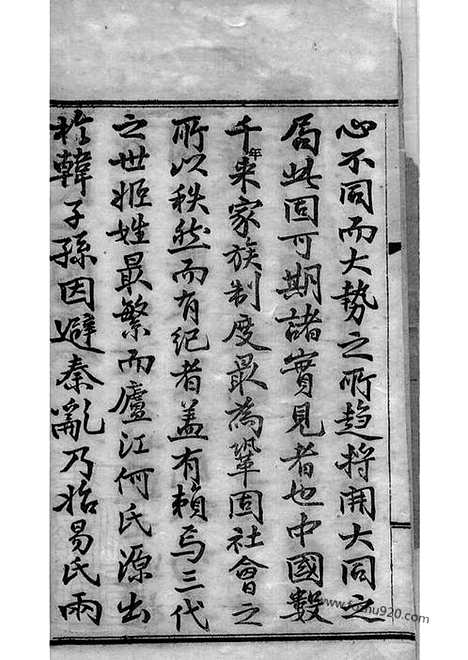 心不同而大勢之所趨將開大同之
局此固可期諸實見者也中國數
千年來家族制度最為鞏固社會之
所以秩然而有紀者蓋有賴焉三代
之世姬姓最繁而廬江何氏源出
於韓子孫因避秦亂乃始易氏兩